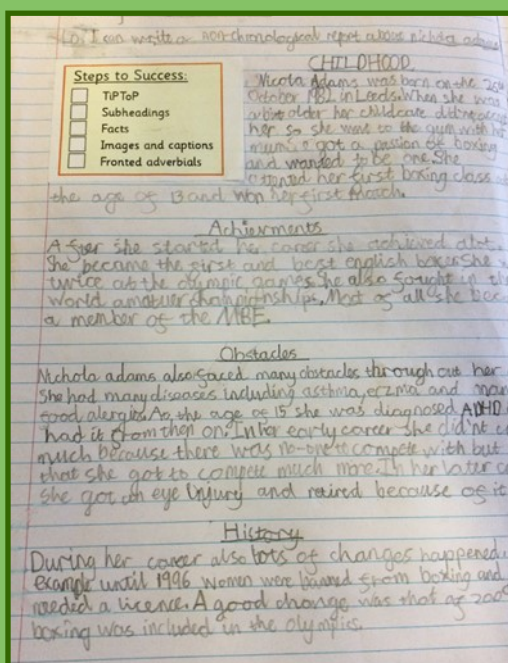 LO: I can write a non-chronological report about nichola adams
Steps to Success:
TiPToP
Subheadings
Facts
Images and captions
Fronted adverbials
CHILDHOOD
Nicola Adams was born on the 25th
October 1982 in Leeds. When she was
a bit older her childcare didn't
her so she went to the gym with her
mum. got a passion of boxing
and wanted to be one. She
attened her first boxing class at
the age of 13 and won her first match.
Achievments
After she started her career she achieved alot.
She became the first and best english boxer She
twice at the olympic games. She also fought in the
world amatuer championships. Most of all she bec
a member of the MBE.
Obstacles
Nichola adams also faced many obstacles through out her
She had many diseases including asthma, eczma and man
food alergies. At the age of 15 she was diagnosed ADHD
had it from then on. In her early career she did'nt c
much because there was no-one to compete with but
that she got to compete much more. In her later c
she got an eye injury and retired because of it
History
During her career also lots of changes happened.
example until 1996 women were banned from boxing and
needed a licence. A good change was that of 2009
boxing was included in the olympics.